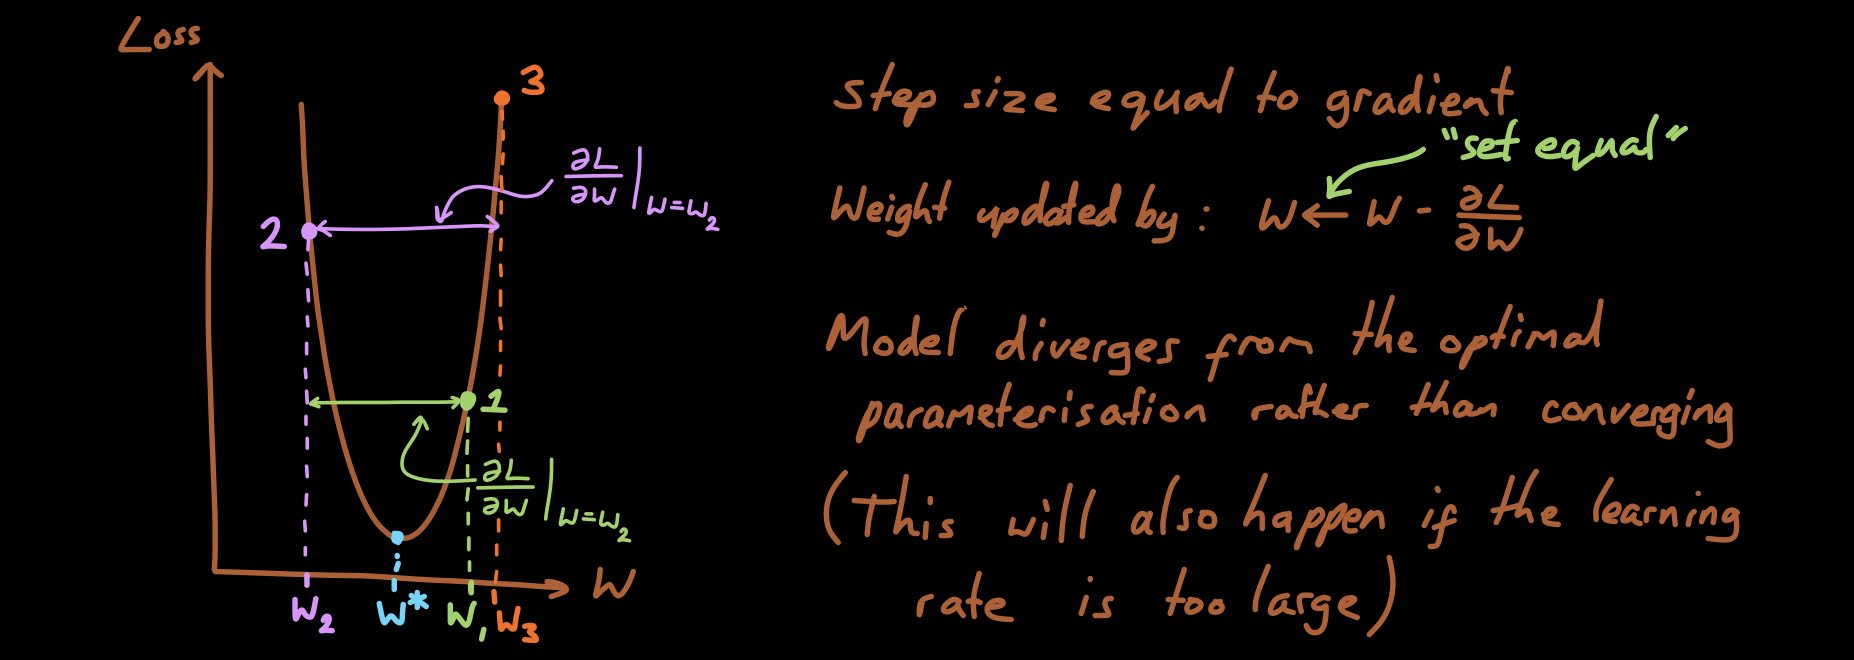 Loss
3
∂L/∂W |W=W2
2
1
∂L/∂W |W=W2
W
W2 W* W1 W3
Step size equal to gradient
"set equal"
Weight updated by: W ← W - ∂L/∂W
Model diverges from the optimal
parameterisation rather than converging
(This will also happen if the learning
rate is too large)